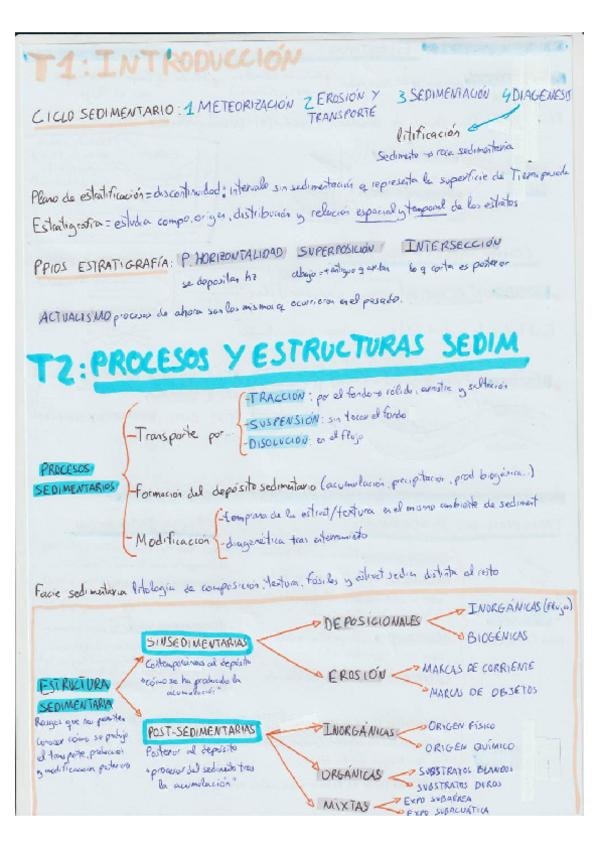 T1: INTRODUCCIÓN
CICLO SEDIMENTARIO: 1 METEORIZACIÓN 2 EROSIÓN Y TRANSPORTE 3 SEDIMENTACIÓN 4 DIAGÉNESIS
litificación
Sedimento → roca sedimentaria
Plano de estratificación = discontinuidad: intervalo sin sedimentación q representa la superficie de Tierra pasada
Estratigrafía = estudia compo, origen, distribución y relación espacial y temporal de los estratos
PPIOS ESTRATIGRAFÍA: P. HORIZONTALIDAD SUPERPOSICIÓN INTERSECCIÓN
se depositan hz abajo = + antiguo q lo q corta es posterior
ACTUALISMO procesos de ahora son los mismos q ocurrieron en el pasado.
T2: PROCESOS Y ESTRUCTURAS SEDIM
PROCESOS SEDIMENTARIOS
- Transporte por...
- TRACCIÓN: por el fondo → rólido, arrastre y saltación
- SUSPENSIÓN: sin tocar el fondo
- DISOLUCIÓN: en el flujo
- Formación del depósito sedimentario (acumulación, precipitación, prod biogénica..)
- Modificación
- temprana de la estruct/textura en el mismo ambiente de sediment
- diagenética tras enterramiento
Facie sedimentaria litología de composición, textura, fósiles y estruct sedim distinta al resto
ESTRUCTURA SEDIMENTARIA
Rasgos que nos permiten
conocer cómo se produjo
el transporte, producción
y modificación posterior
SINSEDIMENTARIAS
Contemporáneas al depósito
"cómo se ha producido la
acumulación"
DEPOSICIONALES
INORGÁNICAS (Flujo)
BIOGÉNICAS
EROSIÓN
MARCAS DE CORRIENTE
MARCAS DE OBJETOS
POST-SEDIMENTARIAS
Posterior al depósito
"procesos del sedimento tras
la acumulación"
INORGÁNICAS
ORIGEN FÍSICO
ORIGEN QUÍMICO
ORGÁNICAS
SUBSTRATOS BLANDOS
SUBSTRATOS DUROS
MIXTAS
EXPO SUBAÉREA
EXPO SUBACUÁTICA